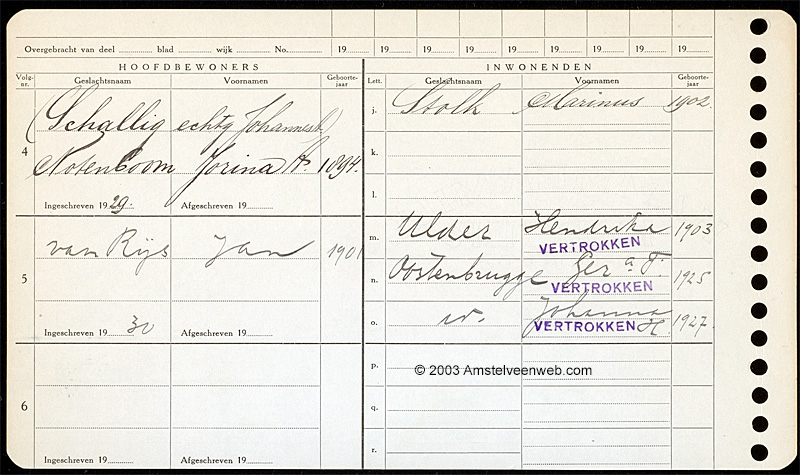 Overgebracht van deel ........ blad ........ wijk ........ No. ........ 19.... 19.... 19.... 19.... 19.... 19.... 19.... 19.... 19....
HOOFDBEWONERS INWONENDEN
Volg-nr. Geslachtsnaam Voornamen Geboorte-jaar Lett. Geslachtsnaam Voornamen Geboorte-jaar
(Schallig echtg Johannes)
j. Stolk Marinus 1902.
4
k.
Notenboom Jorina A. 1894.
l.
Ingeschreven 1929. Afgeschreven 19....
m. Ulder Hendrika 1903
VERTROKKEN
van Rijs Jan 1901
n. Oostenbrugge Ger a F. 1925
5
VERTROKKEN
o. id. Johanna H 1927.
VERTROKKEN
Ingeschreven 1930 Afgeschreven 19....
p.
© 2003 Amstelveenweb.com
6
q.
r.
Ingeschreven 19.... Afgeschreven 19....